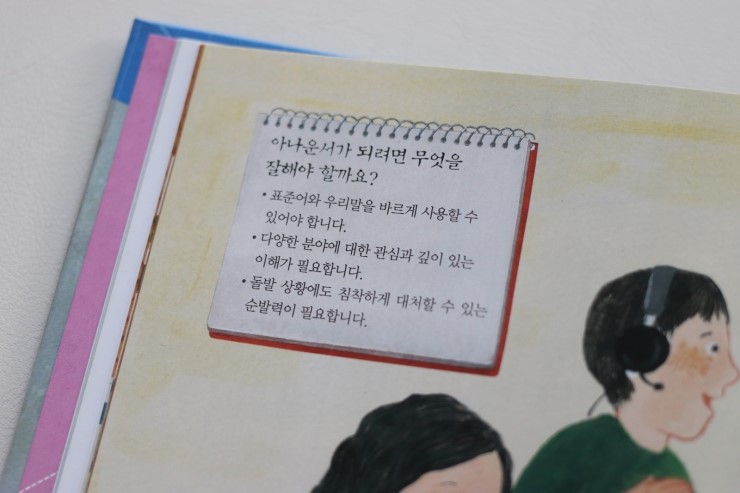 아나운서가 되려면 무엇을
잘해야 할까요?
• 표준어와 우리말을 바르게 사용할 수
있어야 합니다.
• 다양한 분야에 대한 관심과 깊이 있는
이해가 필요합니다.
• 돌발 상황에도 침착하게 대처할 수 있는
순발력이 필요합니다.